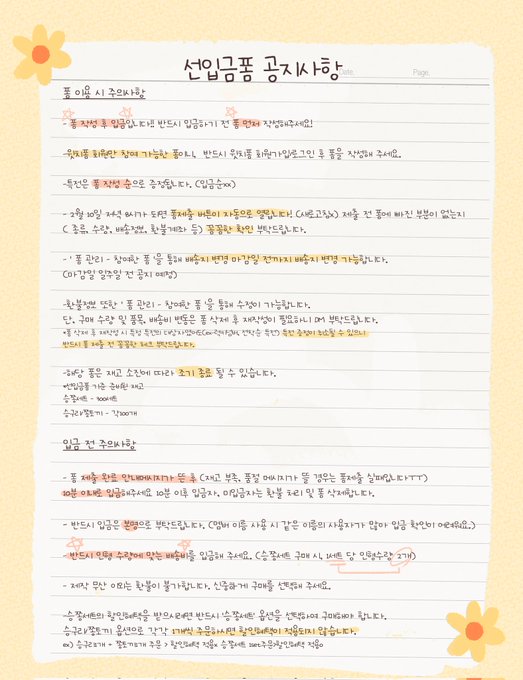 선입금폼 공지사항
Date.
Page.
폼 이용 시 주의사항
- 폼 작성 후 입금입니다!! 반드시 입금하기 전 폼 먼저 작성해주세요!
-윗치폼 회원만 참여 가능한 폼이니, 반드시 윗치폼 회원가입/로그인 후 폼을 작성해 주세요.
-특전은 폼 작성 순으로 증정됩니다. (입금순xx)
- 2월 10일 저녁 8시가 되면 폼제출 버튼이 자동으로 열립니다! (새로고침x) 제출 전 폼에 빠진 부분이 없는지
( 종류, 수량, 배송정보, 환불계좌 등) 꼼꼼한 확인 부탁드립니다.
-' 폼 관리 - 참여한 폼 '을 통해 배송지 변경 마감일 전까지 배송지 변경 가능합니다.
(마감일 일주일 전 공지 예정)
-환불정보 또한 ' 폼 관리 - 참여한 폼 '을 통해 수정이 가능합니다.
단, 구매 수량 및 품목, 배송비 변동은 폼 삭제 후 재작성이 필요하니 DM 부탁드립니다.
*폼 삭제 후 재작성 시 특정 특전의 대상자였어도 선착순 특전) 특전 증정이 취소될 수 있으니
반드시 폼 제출 전 꼼꼼한 체크 부탁드립니다.
-해당 폼은 재고 소진에 따라 조기 종료 될 수 있습니다.
*선입금폼 기준 준비된 재고
승쫄세트 - 300세트
승구리/쫄토끼 - 각100개
입금 전 주의사항
- 폼 제출 완료 안내메시지가 뜬 후 (재고 부족, 품절 메시지가 뜰 경우는 폼제출 실패입니다ㅜㅜ)
10분 이내로 입금해주세요 10분 이후 입금자, 미입금자는 환불 처리 및 폼 삭제합니다.
- 반드시 입금은 본명으로 부탁드립니다. (멤버 이름 사용 시 같은 이름의 사용자가 많아 입금 확인이 어려워요.)
- 반드시 인형 수량에 맞는 배송비를 입금해 주세요. (승쫄세트 구매 시, 1세트 당 인형수량 2개)
- 제작 무산 이외는 환불이 불가합니다. 신중하게 구매를 선택해 주세요.
-승쫄세트의 할인혜택을 받으시려면 반드시 '승쫄세트' 옵션을 선택하여 구매해야 합니다.
승구리/쫄토끼 옵션으로 각각 1개씩 주문하시면 할인혜택이 적용되지 않습니다.
ex) 승구리1개 + 쫄토끼1개 주문 > 할인혜택 적용x 승쫄세트 1set주문>할인혜택 적용o